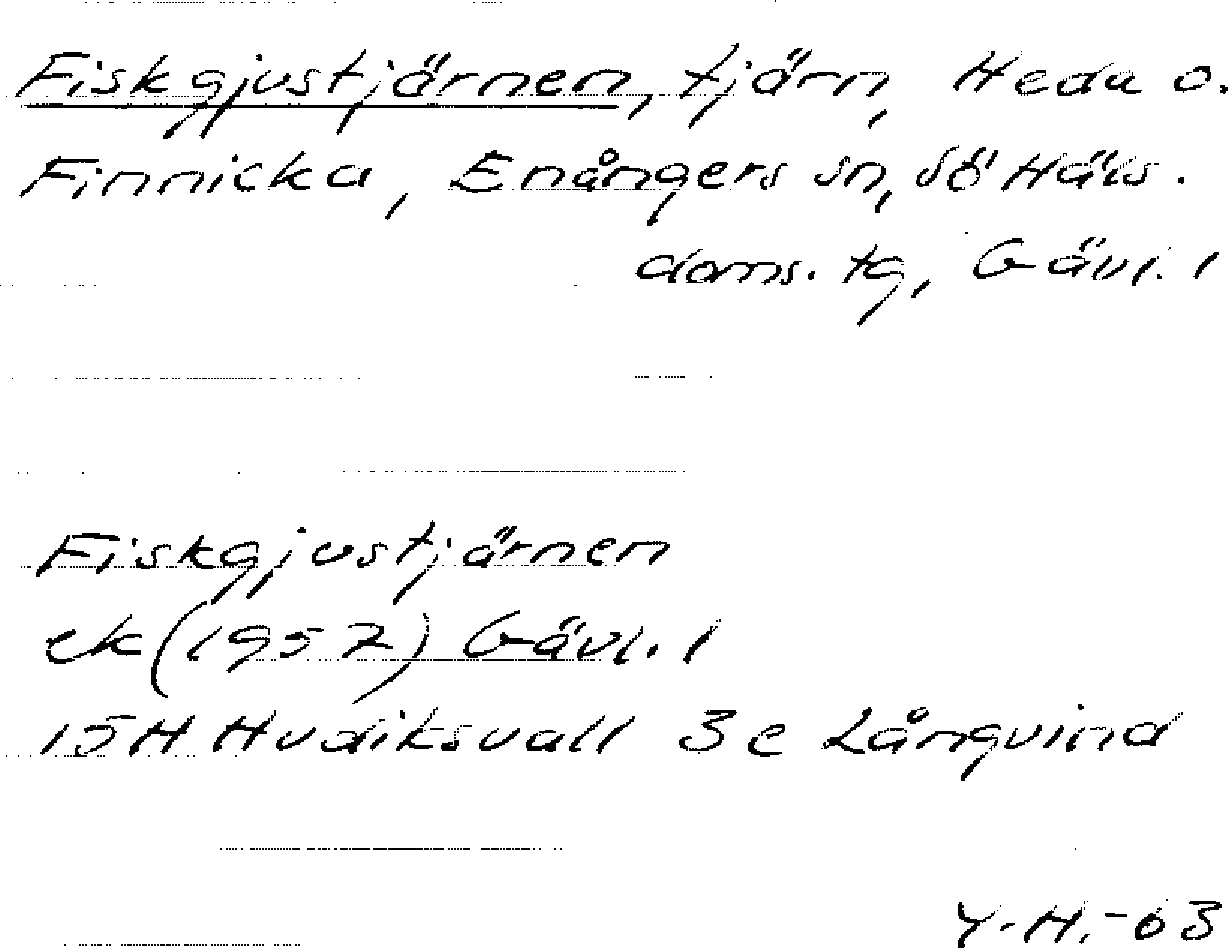 Fiskgjustjärnen, tjärn, Heda o.
Finnicka, Enångers sn, SÖ Häls.
doms. tg, Gävl. l
Fiskgjustjärnen
ek (1957) Gävl. l
15H Hudiksvall 3e Långvind
Y.H.-63